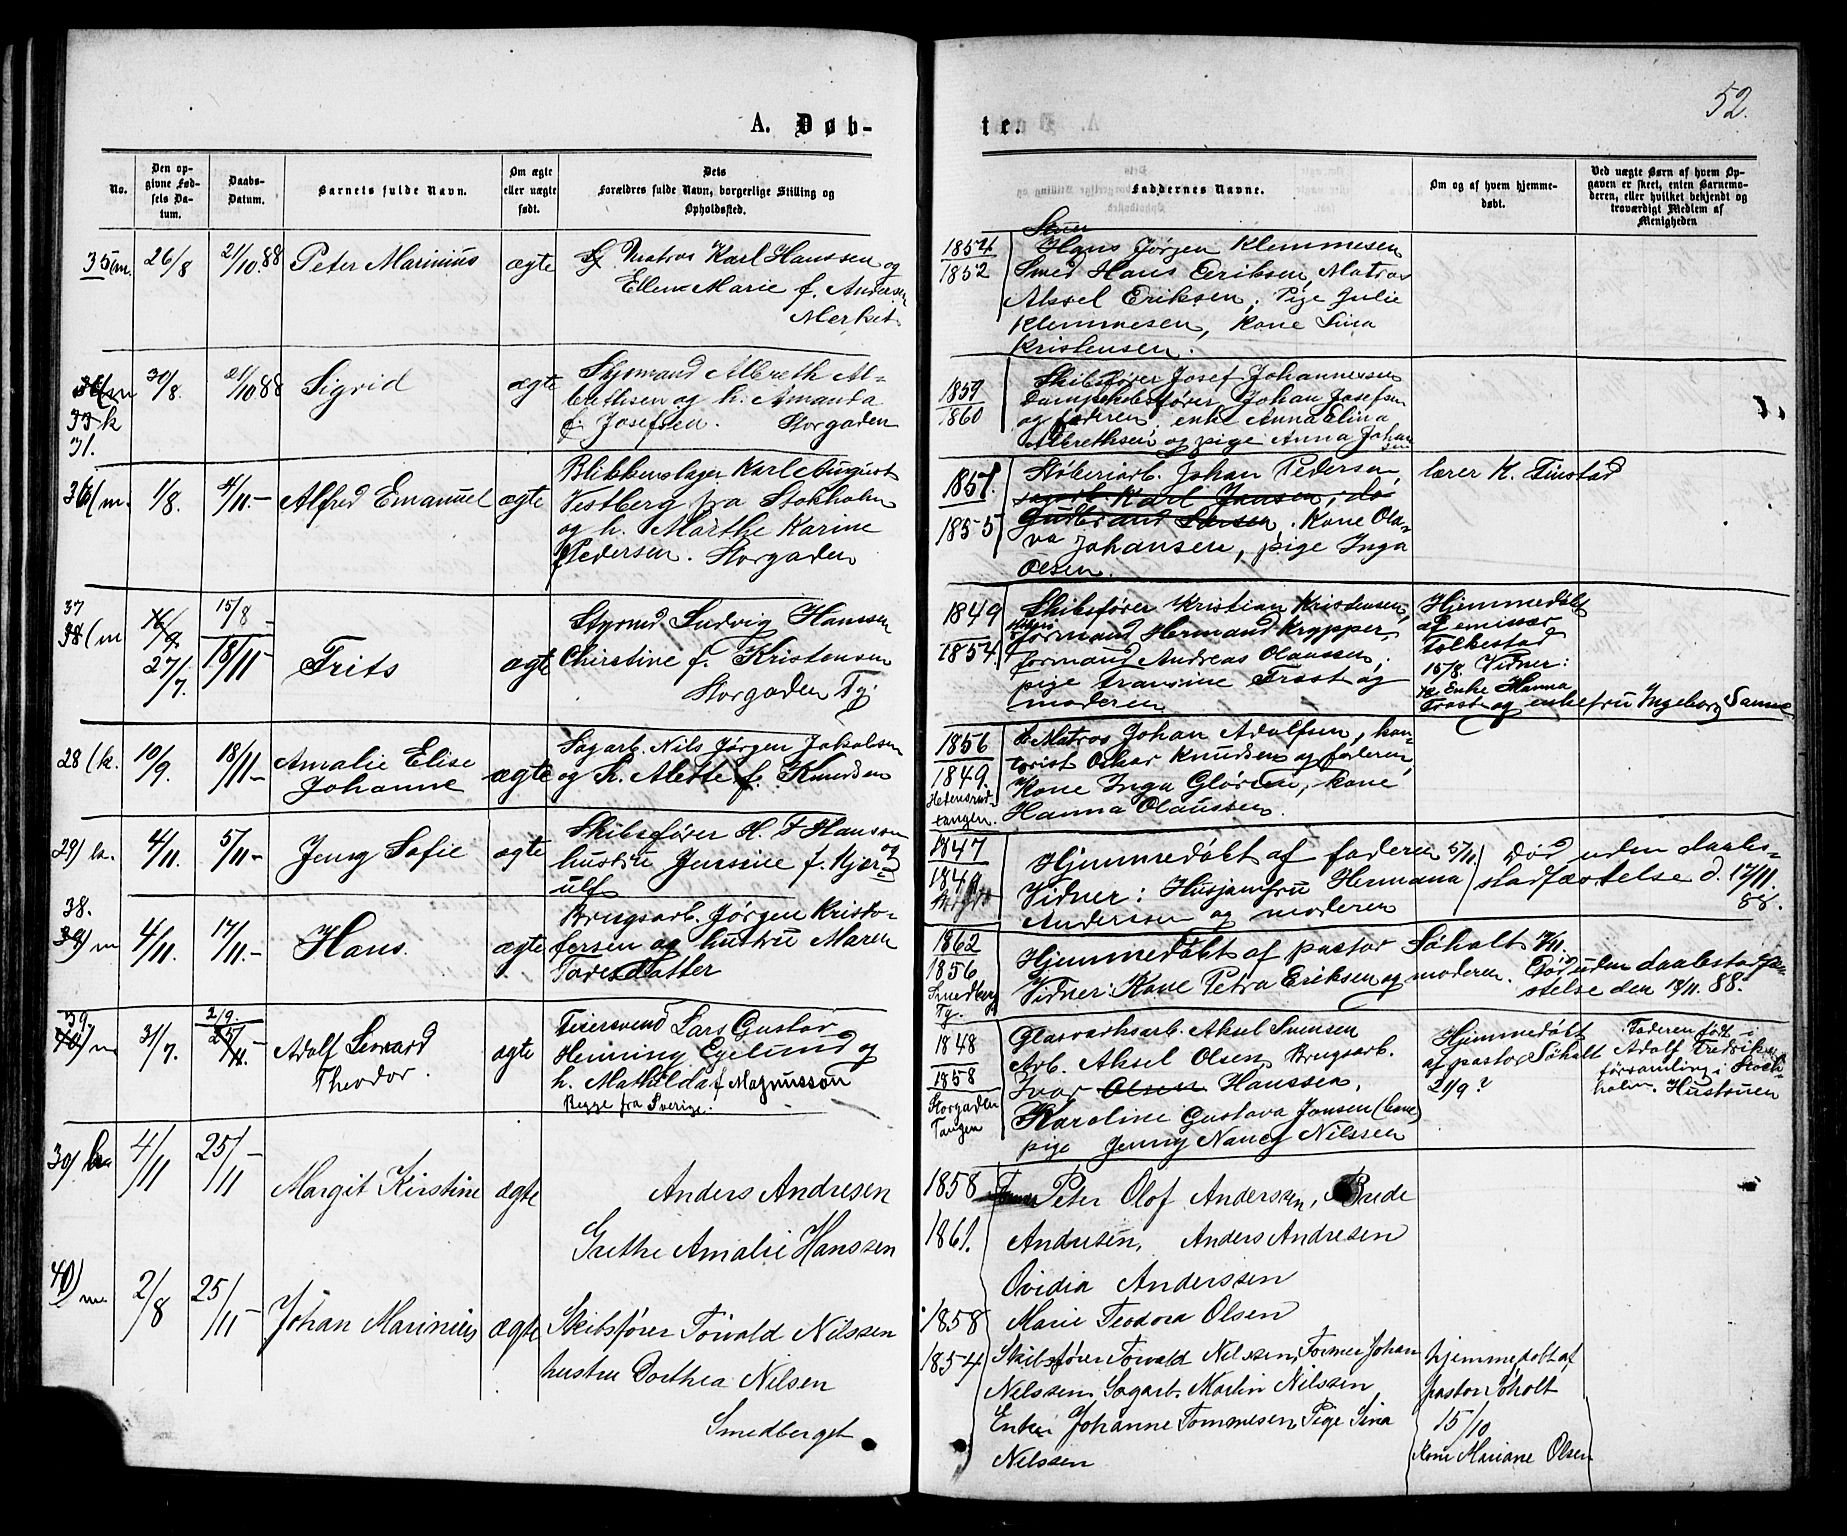 52.
A. Døb-
te.
No.
Den op-
givne Fød-
sels Da-
tum.
Daabs-
Datum.
Barnets fulde Navn.
Om ægte
eller uægte
født.
Dets
Forældres fulde Navn, borgerlige Stilling og
Opholdssted.
Faddernes Navne.
Om og af hvem hjemme-
døbt.
Ved uægte Børn af hvem Op-
gaven er skeet, enten Barnemo-
deren, eller hvilket bekjendt og
troværdigt Medlem af
Menigheden
35/m. 26/8 21/10.88 Peter Marinius ægte Matros Karl Hanssen og
Ellen Marie f. Andersen
Merket
1854
1852
Hans Jørgen Klemmesen
Smed Hans Eriksen, Matros
Aksel Eriksen. Pige Julie
Klemmesen, Kone Sina
Kristensen.
31. 30/8. 21/10 88 Sigrid ægte Styrmand Albreth Al-
brethsen og h. Amanda
f. Josefsen. Storgaden
1859
1860
Skibsfører Josef Johannesen
Dampskibsfører Johan Josefsen
og faderen, enke Anna Elina
Albrethsen og pige Anna Johan
sen
36/m. 1/8. 4/11.- Alfred Emanuel ægte Blikkenslager Karl August
Vestberg fra Stokholm
og h. Marthe Karine
f. Pedersen. Storgaden
1851.
1855
Støberiarb. Johan Pedersen,
sagarb. Karl Jansen, do
Gudbrand Larsen. Kone Ola-
va Johansen, pige Inga
Olsen.
lærer K. Finstad
37
38/m 16/9. 27/7. 15/8 18/11- Frits ægte Styrmd Ludvig Hanssen
Christine f. Kristensen
Storgaden Tg.
1849
1854.
Skibsfører Kristian Kristensen,
formand Herman Krypper,
formand Andreas Olaussen,
pige Fransine Frost og
moderen
Hjemmedøbt
af emissær
Folkestad
15/8. Vidner:
Enke Hanna
Frost og enkefru Ingeborg Sanne
28/k. 10/9. 18/11- Amalie Elise
Johanne ægte Sagarb. Nils Jørgen Jakobsen
og h. Alette f. Knudsen
1856
1849.
tangen.
Matros Johan Adolfsen, kon-
torist Oskar Knudsen og faderen,
Kone Inga Glørsen, kone
Hanna Olaussen
29) k. 4/11. 5/11- Jeny Sofie ægte Skibsfører H. F Hanssen
og
hustru Jensine f. Kjer-
ulf
1847
1849
Hjemmedøbt af faderen 5/11
Vidner: Husjomfru Hermana
Andersen og moderen
Død uden daabs-
stadfæstelse d. 12/11.
88.
38.
39) m 4/11. 17/11.- Hans. ægte Brugsarb. Jørgen Kristo-
fersen og hustru Maren
Toresdatter
1862
1856
Smedberg
Tg.
Hjemmedøbt af pastor Søholt 17/11.
Vidner: Kone Petra Eriksen og moderen.
Død uden daabsstadfæ-
stelse den 19/11. 88.
39
40) m 31/7. 2/9. 25/11.- Adolf Lenard
Theodor. ægte Feiersvend Lars Gustav
Henning Egelund og
h. Mathilda f Magnusson
Begge fra Sverige.
1848
1858
Storgaden
Tangen
Glasværksarb. Aksel Svensen
Arb. Aksel Olsen, Brugsarb.
Ivar Olsen Hanssen,
Karoline Gustava Jonsen (kone)
pige Jenny Nancy Nilssen
Hjemmedøbt
af pastor Søholt
2/9?
Faderen født i
Adolf Fredriks
forsamling i Stock-
holm. Hustruen
30) k 4/11 25/11- Margit Kirstine ægte Anders Andresen
Grethe Amalie Hanssen
1858
1861.
Peter Olof Anderssen, Brede
Andersen, Anders Andresen
Ovidia Anderssen
Marie Teodora Olsen
40) m. 2/8 25/11- Johan Marinius ægte Skibsfører Torvald Nilssen
hustru Dorthea Nilsen
Smedberget
1858
1854
Skibsfører Torvald Nilssen, Former Johan
Nilssen, Sagarb. Martin Nilssen
Enke Johanne Tommesen, Pige Sina
Nilssen
hjemmedøbt af
pastor Søholt
15/10
Kone Mariane Olsen